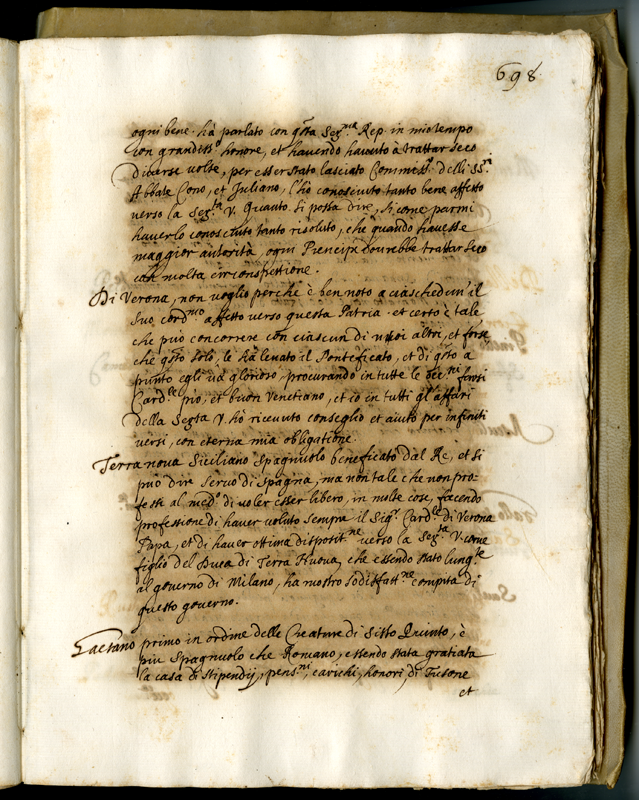 698
ogni bene. hà parlato con q̃sta Ser.ma Rep. in mio tempo
con grandiss.o honore, et havendo havuto à trattar seco
diverse volte, per esser stato lasciato Commiss.o delli SS.ri
Abbate Cono, et Juliano, l'ho conosciuto tanto bene affetto
verso la Ser.ta V. Quanto si possa dire, si come parmi
haverlo conosciuto tanto risoluto, che quando havesse
maggior autorità, ogni Prencipe dourebbe trattar seco
con molta circonspettione.
Di Verona, non voglio perche è ben noto a ciaschedun' il
suo cord.mo affetto verso questa Patria. et certo è tale
che può concorrere con ciascun di noi altri, et forse
che q̃sto solo, le hà levato il Pontificato, et di q̃sto à
punto egli và glorioso, procurando in tutte le
Card.le pio, et buon Venetiano, et io in tutti gl'affari
della Serta V. hò ricevuto conseglio et aiuto per infiniti
versi, con eterna mia obligatione.
Terra nova Siciliano Spagnuolo beneficato dal Re, et si
può dire servo di Spagna, ma non tale che non pro-
fessi al med.o di voler esser libero, in molte cose, facendo
professione di haver voluto sempre il Sig.r Card.le di Verona
Papa, et di haver ottima disposit.ne verso la Ser.ta V. come
figlio del Duca di Terra Nuova, che essendo stato lung.te
al governo di Milano, ha mostro sodisfatt.ne compita di
questo governo.
Gaetano primo in ordine delle Creature di Sisto Quinto, è
più Spagnuolo che Romano, essendo stata gratiata
la casa di stipendij, pens.ni, carichi, honori, di Tusone
et